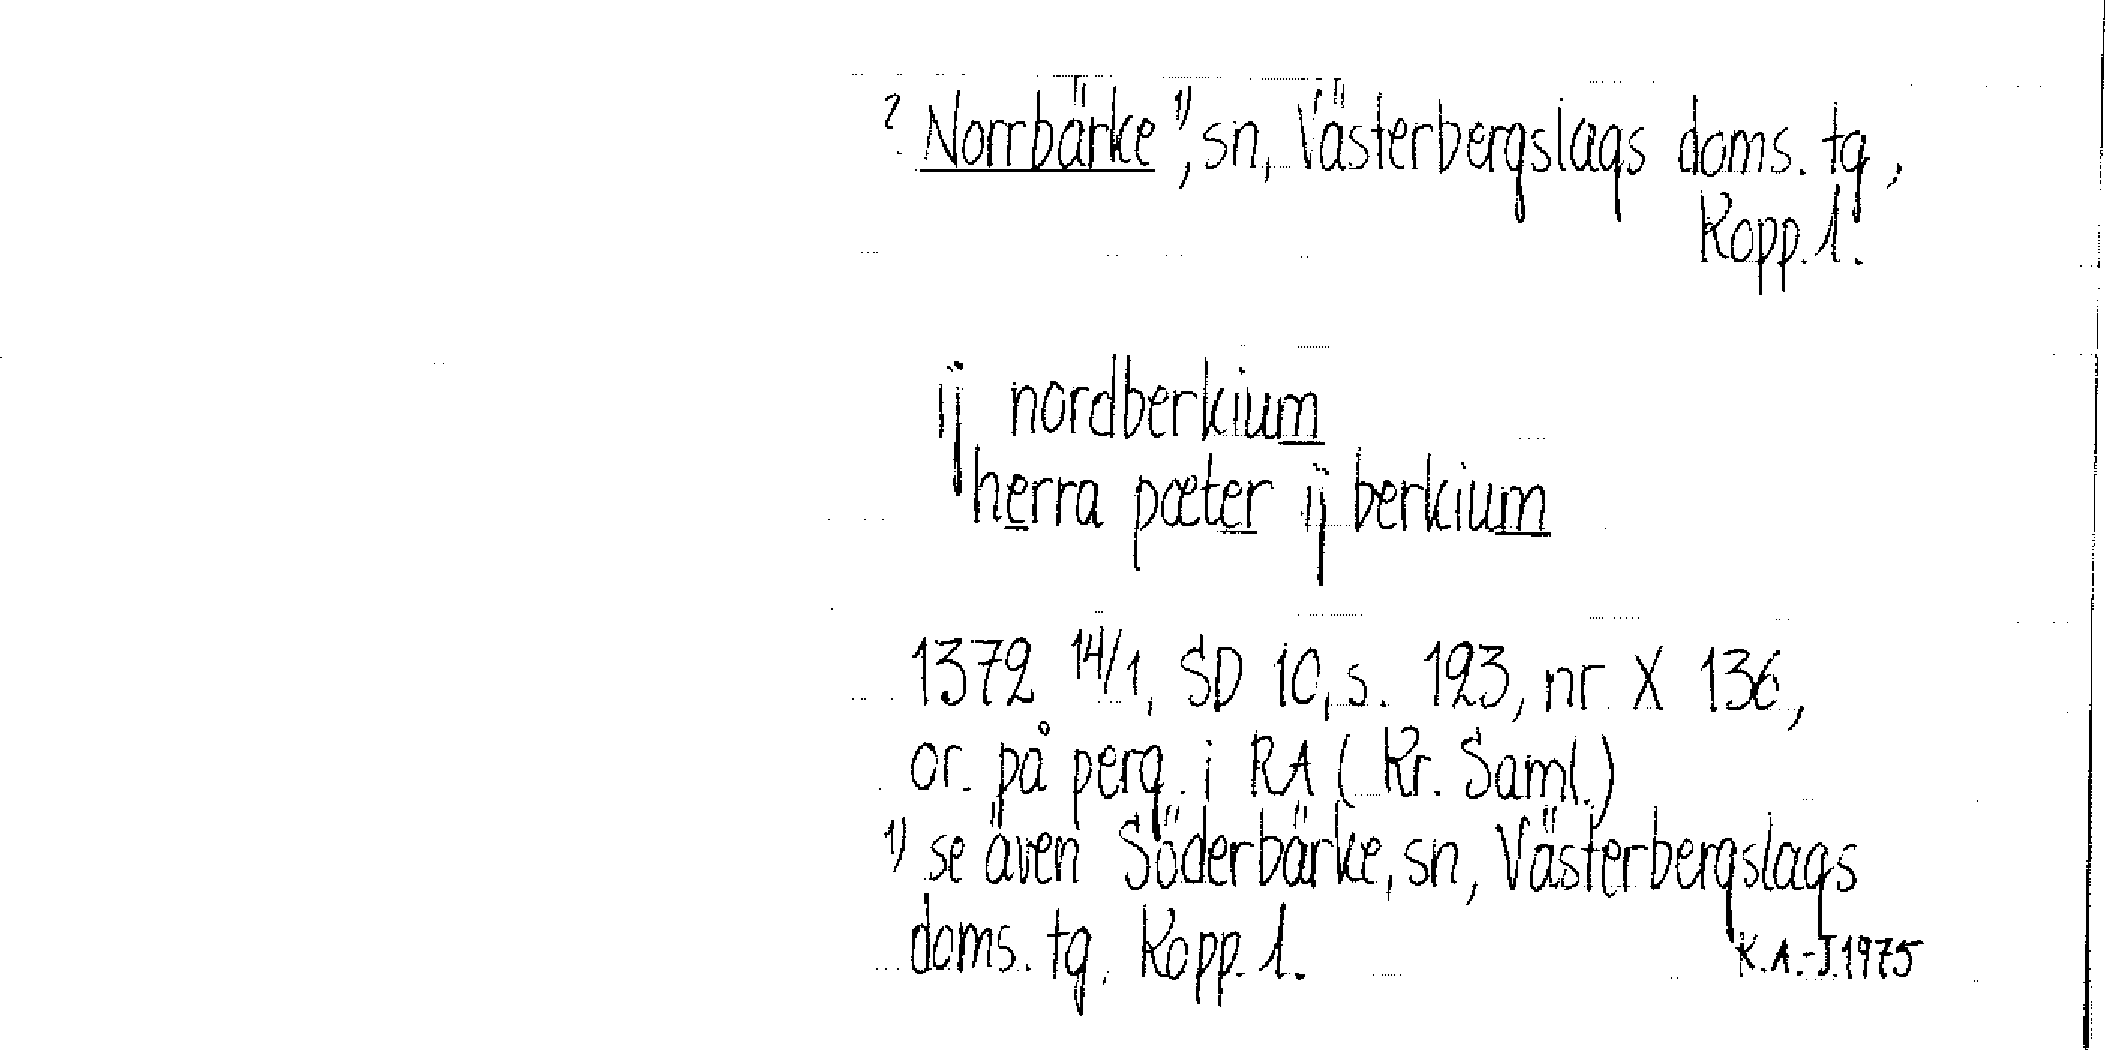 ? Norrbärke 1), sn, Västerbergslags doms. tg,
Kopp. l.
ij nordberkium
herra pæter ij berkium
1372 14/1, SD 10, s. 123, nr X 136,
or. på perg. i RA ( Kr. Saml.)
1) se även Söderbärke, sn, Västerbergslags
doms. tg. Kopp. l.
K.A.-J.1975